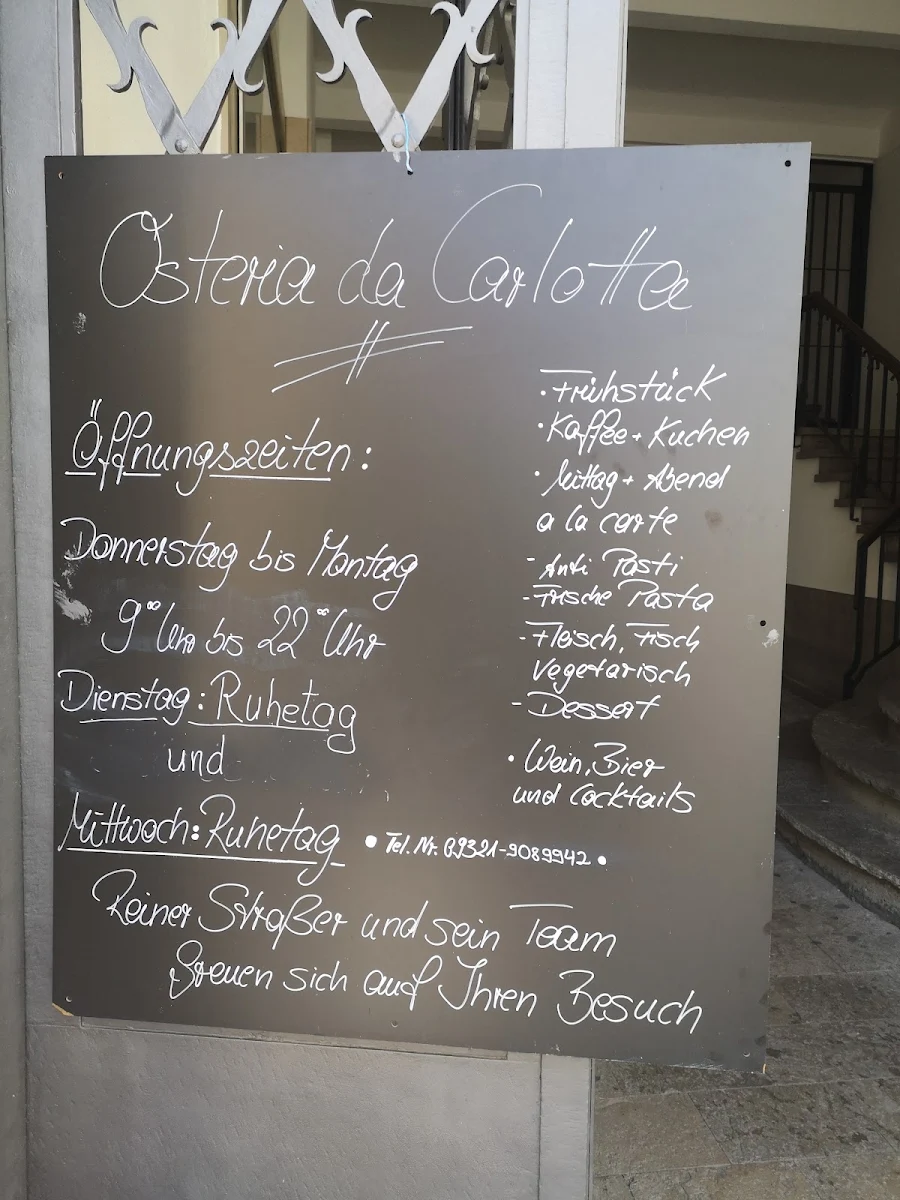 Osteria da Carlotta
Öffnungszeiten:
Donnerstag bis Montag
9⁰⁰ Uhr bis 22⁰⁰ Uhr
Dienstag: Ruhetag
und
Mittwoch: Ruhetag
• Tel. Nr. 09321-9089942 •
• Frühstück
• Kaffee + Kuchen
• Mittag + Abend
a la carte
- Anti Pasti
- Frische Pasta
- Fleisch, Fisch
Vegetarisch
- Dessert
• Wein, Bier
und Cocktails
Reiner Straßer und sein Team
freuen sich auf Ihren Besuch